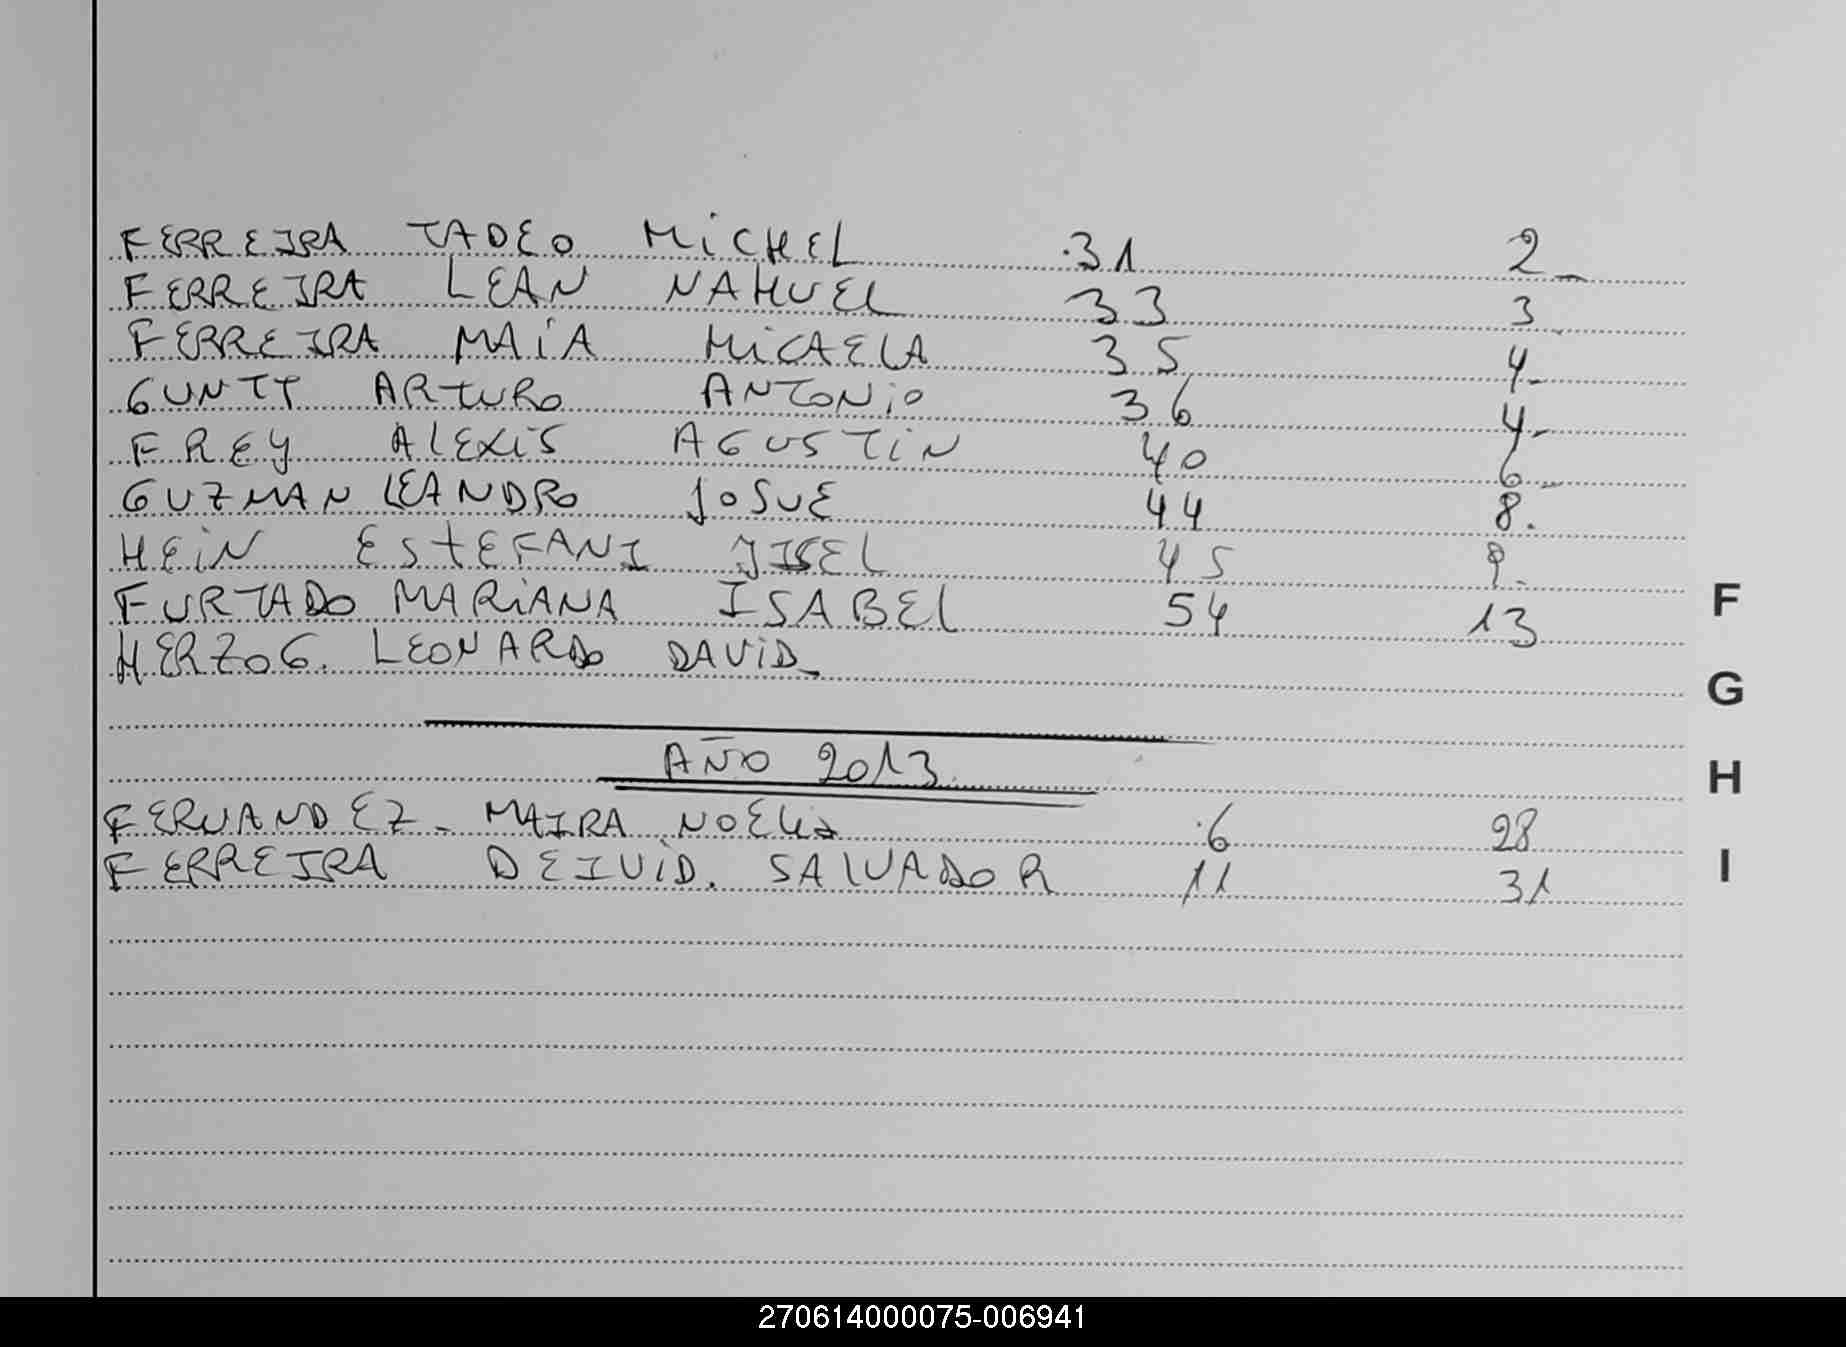 FERREIRA TADEO MICHEL 31 2
FERREIRA LEAN NAHUEL 33 3
FERREIRA MAIA MICAELA 35 4
GUNTT ARTURO ANTONIO 36 4
FREY ALEXIS AGUSTIN 40 6
GUZMAN LEANDRO JOSUE 44 8.
HEIN ESTEFANI JISEL 45
FURTADO MARIANA ISABEL 54 13
HERZOG. LEONARDO DAVID
AÑO 2013.
FERNANDEZ - MAIRA NOELIA 6 28
FERREIRA DEIVID. SALVADOR 11 31
F
G
H
I
270614000075-006941